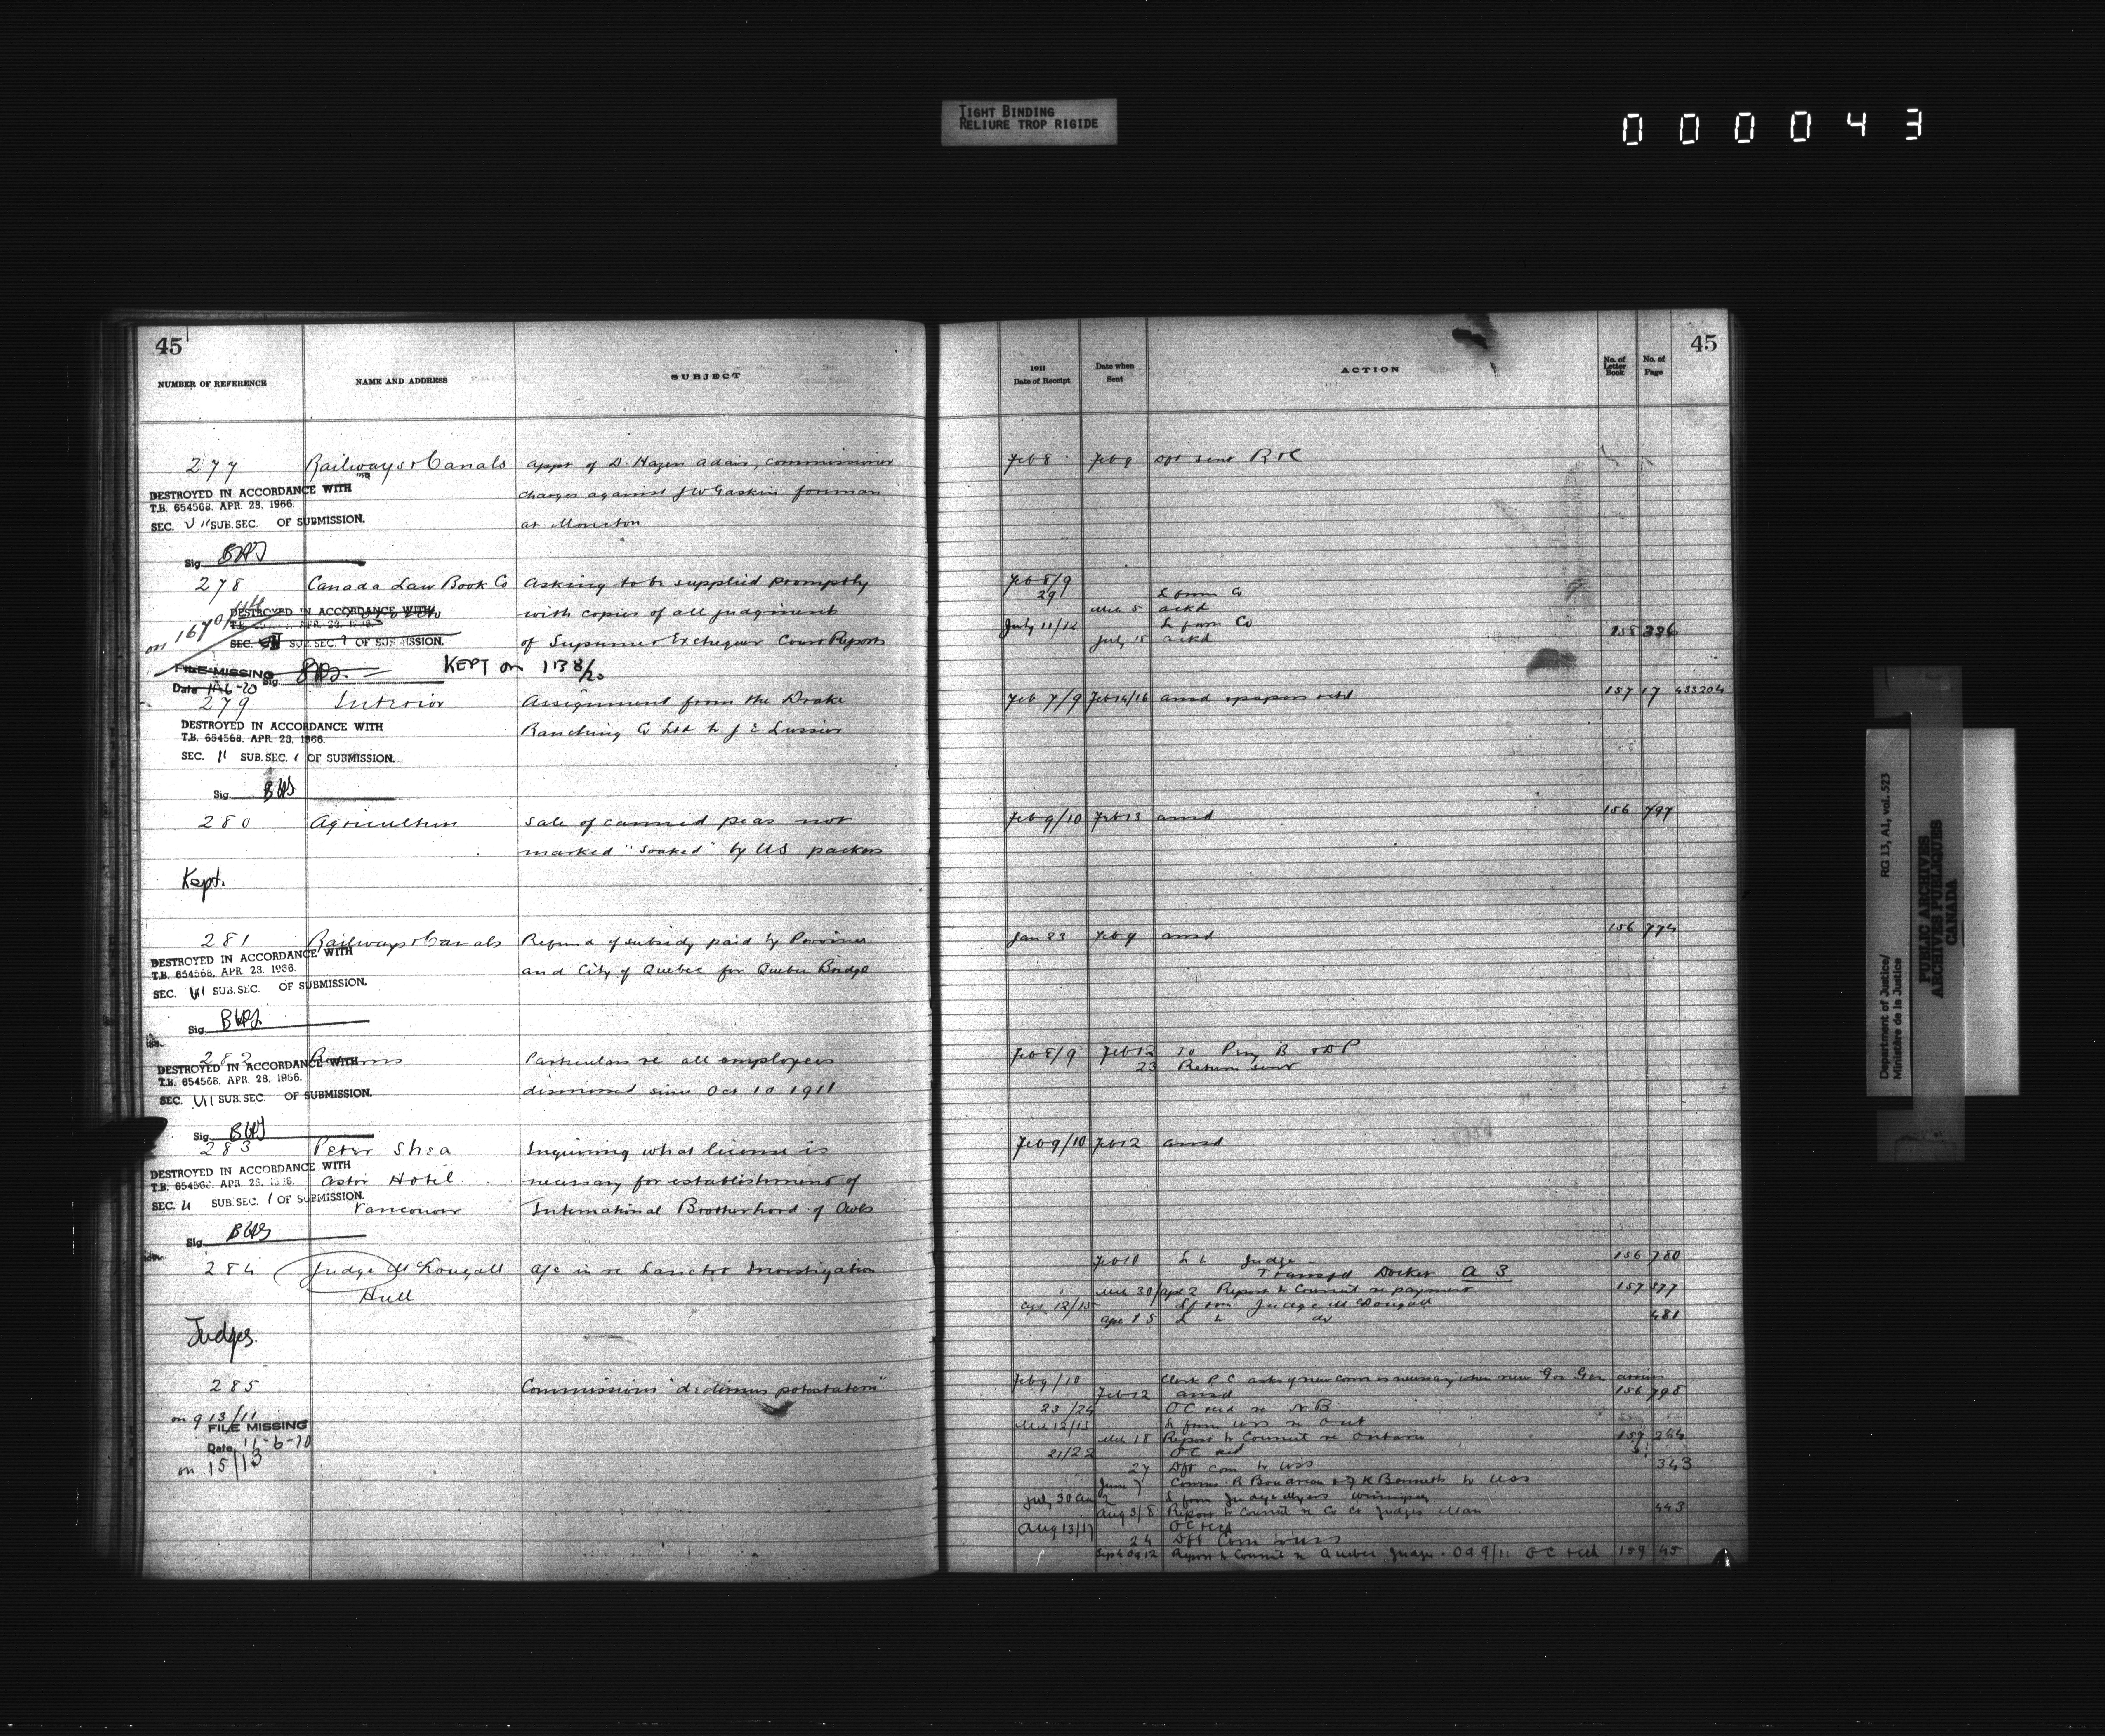 TIGHT BINDING
RELIURE TROP RIGIDE
000043
45
NUMBER OF REFERENCE NAME AND ADDRESS SUBJECT
277 Railways & Canals appt of D. Hazen Adair, commissioner
charges against J W Gaskin foreman
at Moncton
DESTROYED IN ACCORDANCE WITH
T.B. 654568. APR. 28. 1966.
SEC. SUB.SEC. OF SUBMISSION.
Sig.
278 Canada Law Book Co asking to be supplied promptly
with copies of all judgments
of Supreme & Exchequer Court Reports
DESTROYED IN ACCORDANCE WITH
SEC. SUB.SEC. OF SUBMISSION.
on 167
FILE MISSING
Sig.
KEPT on 1138/20
Date 11-6-70
279 Interior Assignment from the Drake
Ranching Co Ltd to J E Lussier
DESTROYED IN ACCORDANCE WITH
T.B. 654568. APR. 28. 1966.
SEC. 11 SUB.SEC. 1 OF SUBMISSION.
Sig.
280 Agriculture Sale of canned peas not
marked "soaked" by US packers
Kept.
281 Railways & Canals Refund of subsidy paid by Province
and City of Quebec for Quebec Bridge
DESTROYED IN ACCORDANCE WITH
T.B. 654568. APR. 28. 1966.
SEC. SUB.SEC. OF SUBMISSION.
Sig.
282 Returns Particulars re all employees
dismissed since Oct 10 1911
DESTROYED IN ACCORDANCE WITH
T.B. 654568. APR. 28. 1966.
SEC. SUB.SEC. OF SUBMISSION.
Sig.
283 Peter Shea Inquiring what license is
Astor Hotel necessary for establishment of
Vancouver International Brotherhood of Owls
DESTROYED IN ACCORDANCE WITH
T.B. 654568. APR. 28. 1966.
SEC. 11 SUB.SEC. 1 OF SUBMISSION.
Sig.
284 Judge McDougall a/c in re Lanctot Investigation
Hull
Judges.
285 Commissions "dedimus potestatem"
on 913/11
FILE MISSING
Date 11-6-70
on 15/13
45
1911
Date of Receipt Date when Sent ACTION No. of Letter Book No. of Page
Feb 8 Feb 9 Dft sent R & C
Feb 8/9
29 L from Co
Mch 5 ackd
July 11/12 L from Co
July 15 ackd 158 336
Feb 7/9 Feb 14/16 ansd & papers retd 157 17 433204
Feb 9/10 Feb 13 ansd 156 797
Jan 23 Feb 9 ansd 156 774
Feb 8/9 Feb 12 To Peny B & DP
23 Return sent
Feb 9/10 Feb 12 ansd
Feb 10 L to Judge 156 780
Transfd Docket A 3
Mch 30/Apr 2 Report to Council re payment 157 377
Apr 12/15 L from Judge McDougall
Apr 15 L to do 481
Feb 9/10 Clerk P.C. asks if new Comn is necessary when new Gov Gen arrives
Feb 12 ansd 156 798
23/24 OC recd re N B
Mch 12/13 L from USS re Ont
Mch 18 Report to Council re Ontario 157 264
21/22 OC recd
27 Dft com to USS 343
June 7 to USS
July 30 Aug 2 L from Judge Myers Winnipeg
Aug 3/8 Report to Council re Co Ct Judges Man 443
Aug 13/17 OC recd
24 Dft Com to USS
Report to Council re Quebec Judges. Oct 9/11 OC recd 159 45
Department of Justice/
Ministère de la Justice
RG 13, A1, vol. 523
PUBLIC ARCHIVES
ARCHIVES PUBLIQUES
CANADA